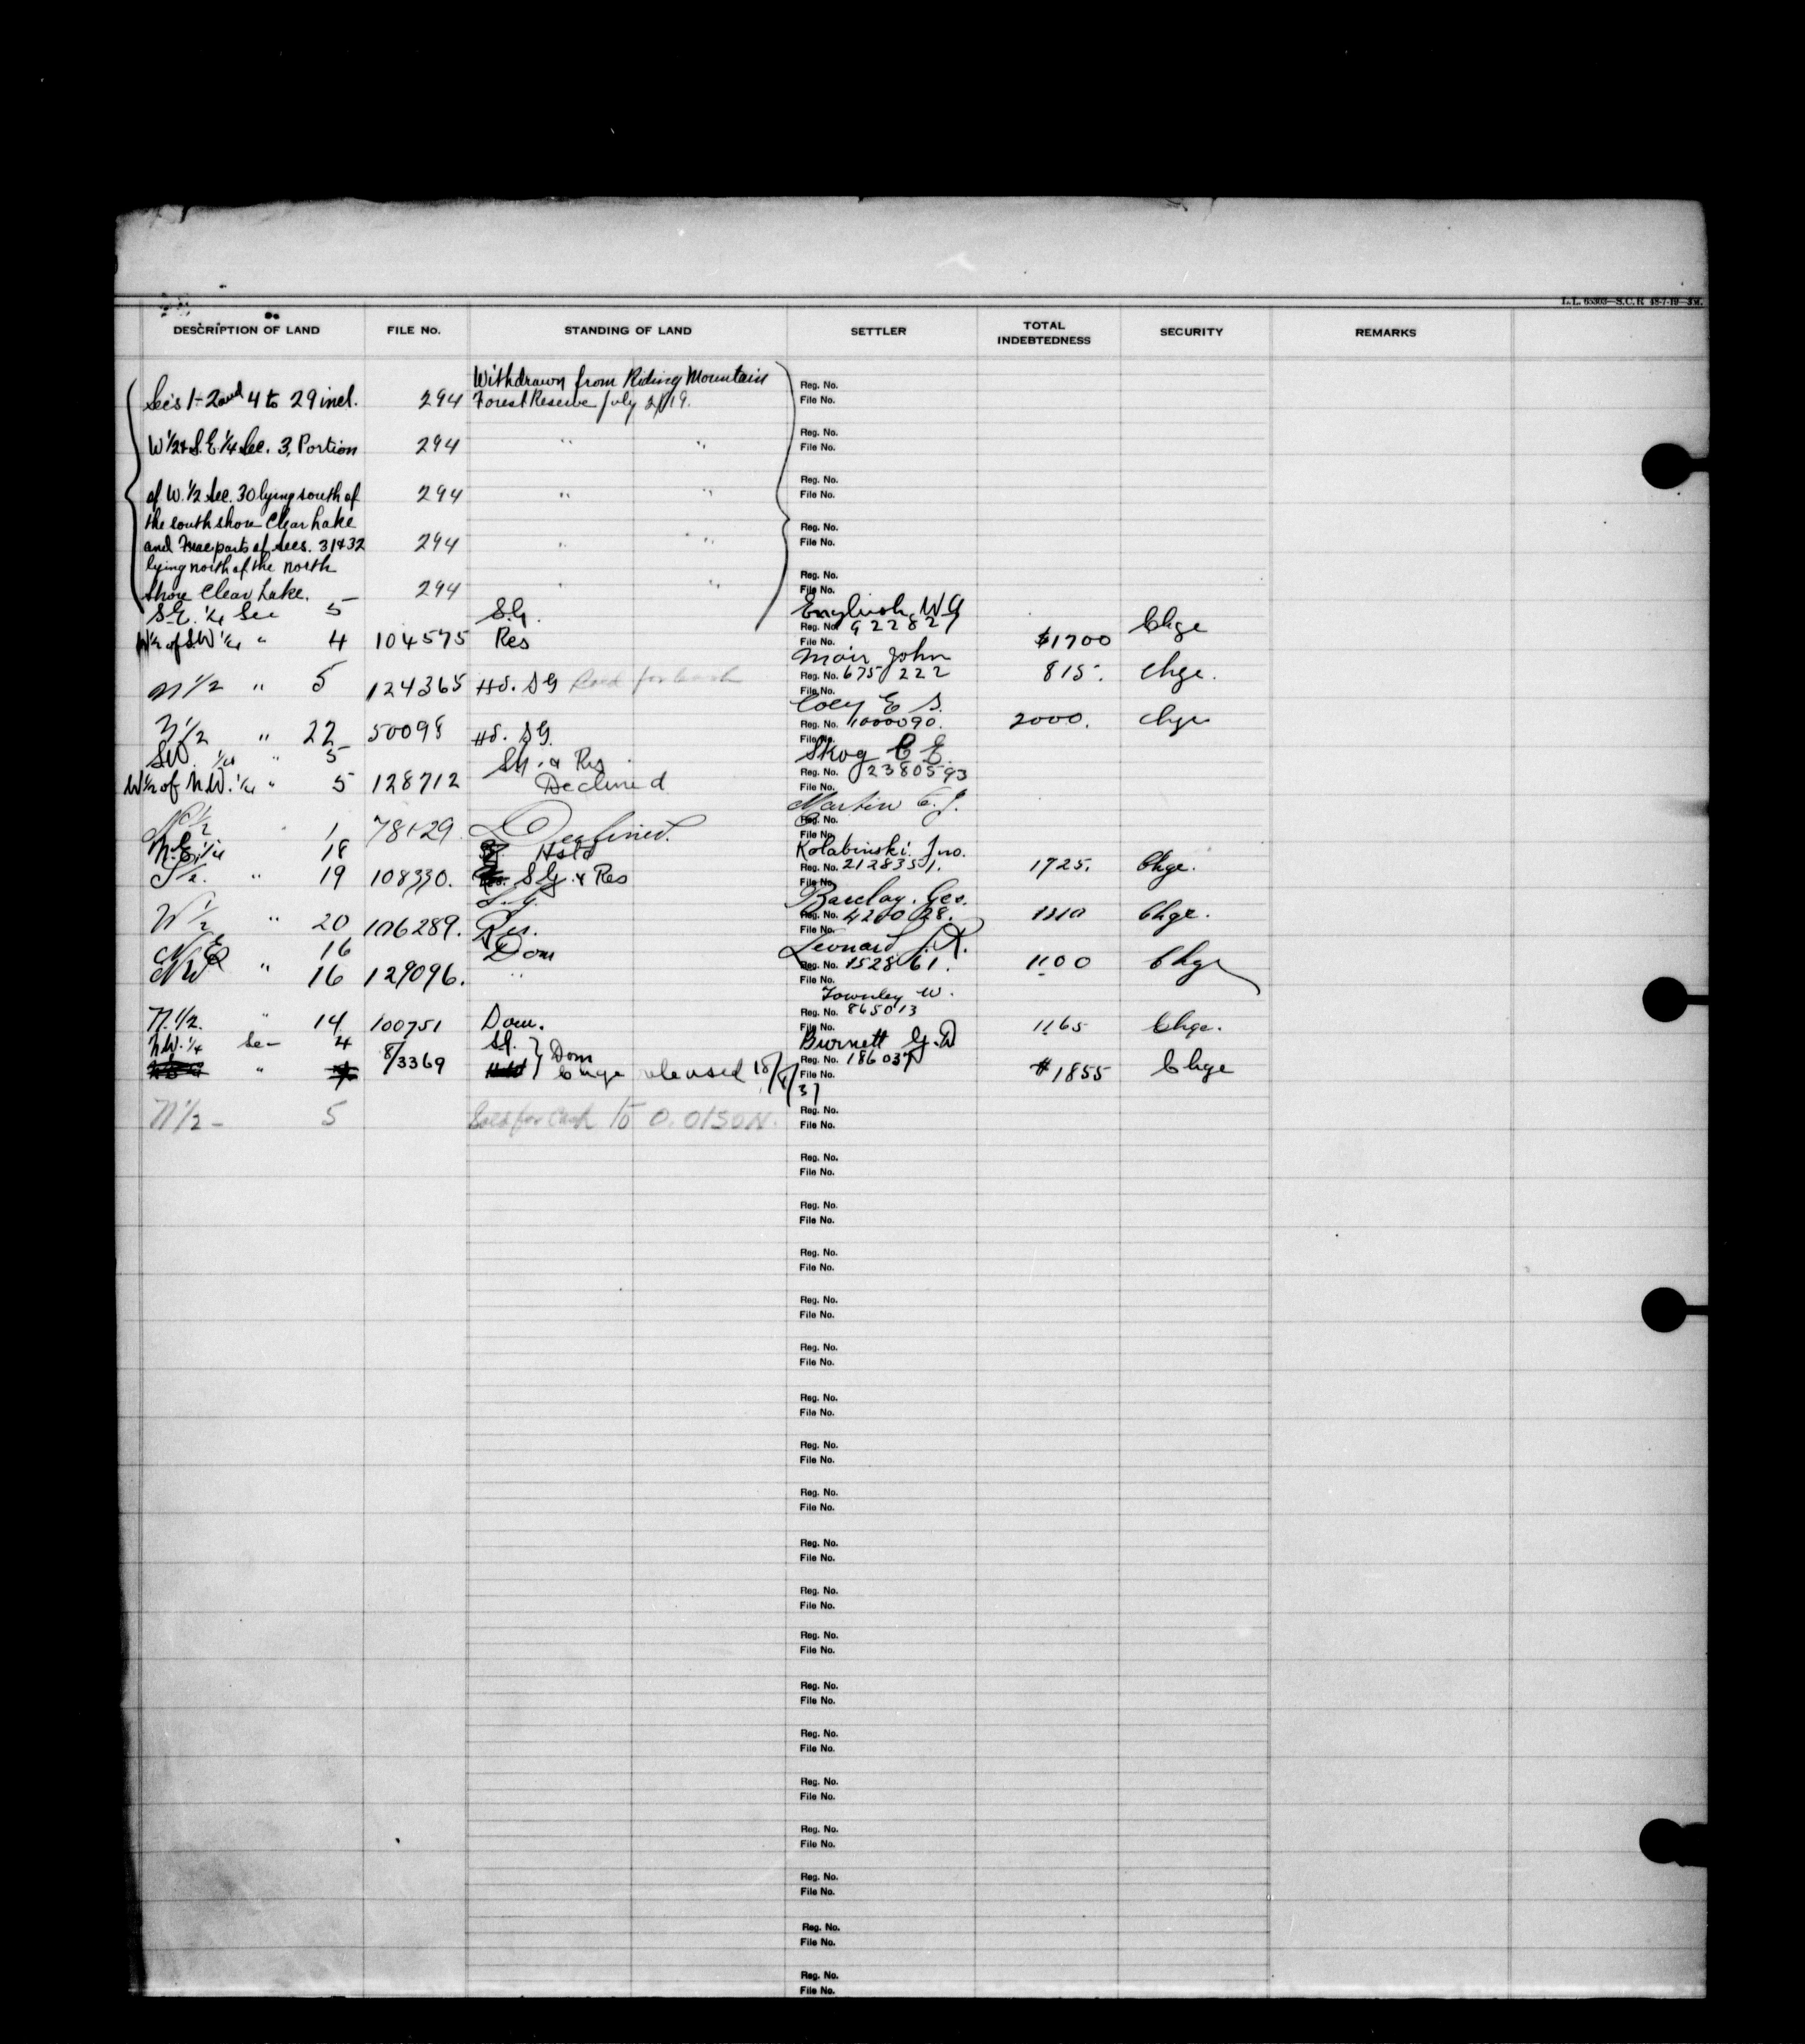 L.L. 65303—S.C.R. 48-7-19—3M.
DESCRIPTION OF LAND FILE No. STANDING OF LAND SETTLER TOTAL INDEBTEDNESS SECURITY REMARKS
Withdrawn from Riding Mountain
Reg. No.
Sec's 1-2 and 4 to 29 incl. 294 Forest Reserve July 21/19. File No.
Reg. No.
W 1/2 & S.E. 1/4 Sec. 3, Portion 294 " " File No.
Reg. No.
of W. 1/2 Sec. 30 lying south of 294 " " File No.
the south shore Clear Lake Reg. No.
and Frac parts of Secs. 31 & 32 294 " " File No.
lying north of the north Reg. No.
shore Clear Lake. 294 " " File No.
S.E. 1/4 Sec 5 S.G. English W G
Reg. No. 922827 Chge
W 1/2 of S.W 1/4 " 4 104575 Res File No. $1700
Mair John
N 1/2 " 5 124365 Hd. SG for cash Reg. No. 675222 815. Chge.
File No.
Coey E S.
N 1/2 " 22 50098 Hd. SG. Reg. No. 1000090. 2000. Chge
File No.
SW. 1/4 " 5 SG. & Res Skog C E.
Reg. No. 2380593
W 1/2 of N.W. 1/4 " 5 128712 Declined File No.
Martin C. J.
N 1/2 " 1 78129 Declined. Reg. No.
File No.
N.E. 1/4 18 Hstd Kolabinski Jno.
Reg. No. 2128351. 1725. Chge.
S 1/2. " 19 108330. S.G. & Res File No.
S.G. Barclay. Geo.
W 1/2 " 20 106289. Res. Reg. No. 420028. 1310 Chge.
File No.
NE 16 Dom Leonard J.R.
NW " 16 129096. " Reg. No. 152861. 1100 Chge
File No.
Townley W.
Reg. No. 865013
N. 1/2. " 14 100751 Dom. File No. 1165 Chge.
N.W. 1/4 Sec 4 SG. Dom Burnett G.D
8/3369 Reg. No. 186037
" Chge released 18/8/37 File No. $1855 Chge
N 1/2 - 5 Sold for Cash to O. OLSON. Reg. No.
File No.
Reg. No.
File No.
Reg. No.
File No.
Reg. No.
File No.
Reg. No.
File No.
Reg. No.
File No.
Reg. No.
File No.
Reg. No.
File No.
Reg. No.
File No.
Reg. No.
File No.
Reg. No.
File No.
Reg. No.
File No.
Reg. No.
File No.
Reg. No.
File No.
Reg. No.
File No.
Reg. No.
File No.
Reg. No.
File No.
Reg. No.
File No.
Reg. No.
File No.